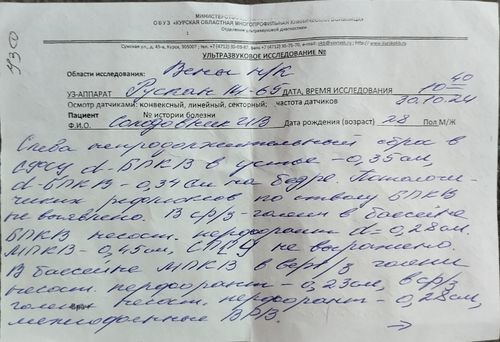 УЗО
МИНИСТЕРСТВО
ОБУЗ «КУРСКАЯ ОБЛАСТНАЯ МНОГОПРОФИЛЬНАЯ КЛИНИЧЕСКАЯ БОЛЬНИЦА»
Отделение ультразвуковой диагностики
Сумская ул., д. 45-а, Курск, 305007
УЛЬТРАЗВУКОВОЕ ИССЛЕДОВАНИЕ №
Области исследования: Вены н/к
УЗ-АППАРАТ Рускан ДАТА, ВРЕМЯ ИССЛЕДОВАНИЯ 10 40
Осмотр датчиками: конвексный, линейный, секторный; частота датчиков 30.10.24
Пациент № истории болезни
Ф.И.О. Дата рождения (возраст) 28 Пол М/Ж
Слева непродолжительный
d-БПКВ в устье - 0,35 см,
d-БПКВ - 0,34 см на бедре. Патологи-
ческих рефлюксов по стволу БПКВ
не выявлено. В ср/з - голени в бассейне
БПКВ несост. перфорант d = 0,28 см.
МПКВ - 0,45 см, не выражено.
В бассейне МПКВ в верх/з голени
несост. перфорант - 0,23 см, в ср/з
голени несост. перфорант - 0,28 см,
ВРВ.
→